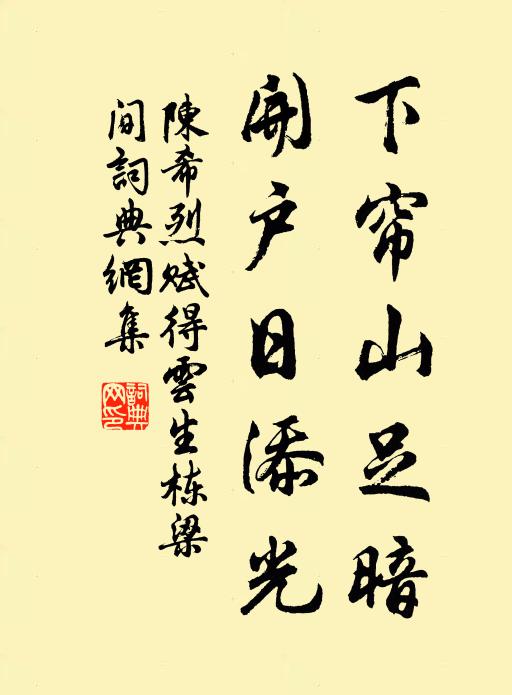 下帘山足暗
開户日添光
陳希烈賦得雲生栋梁
间詞典網集
詞典
网印